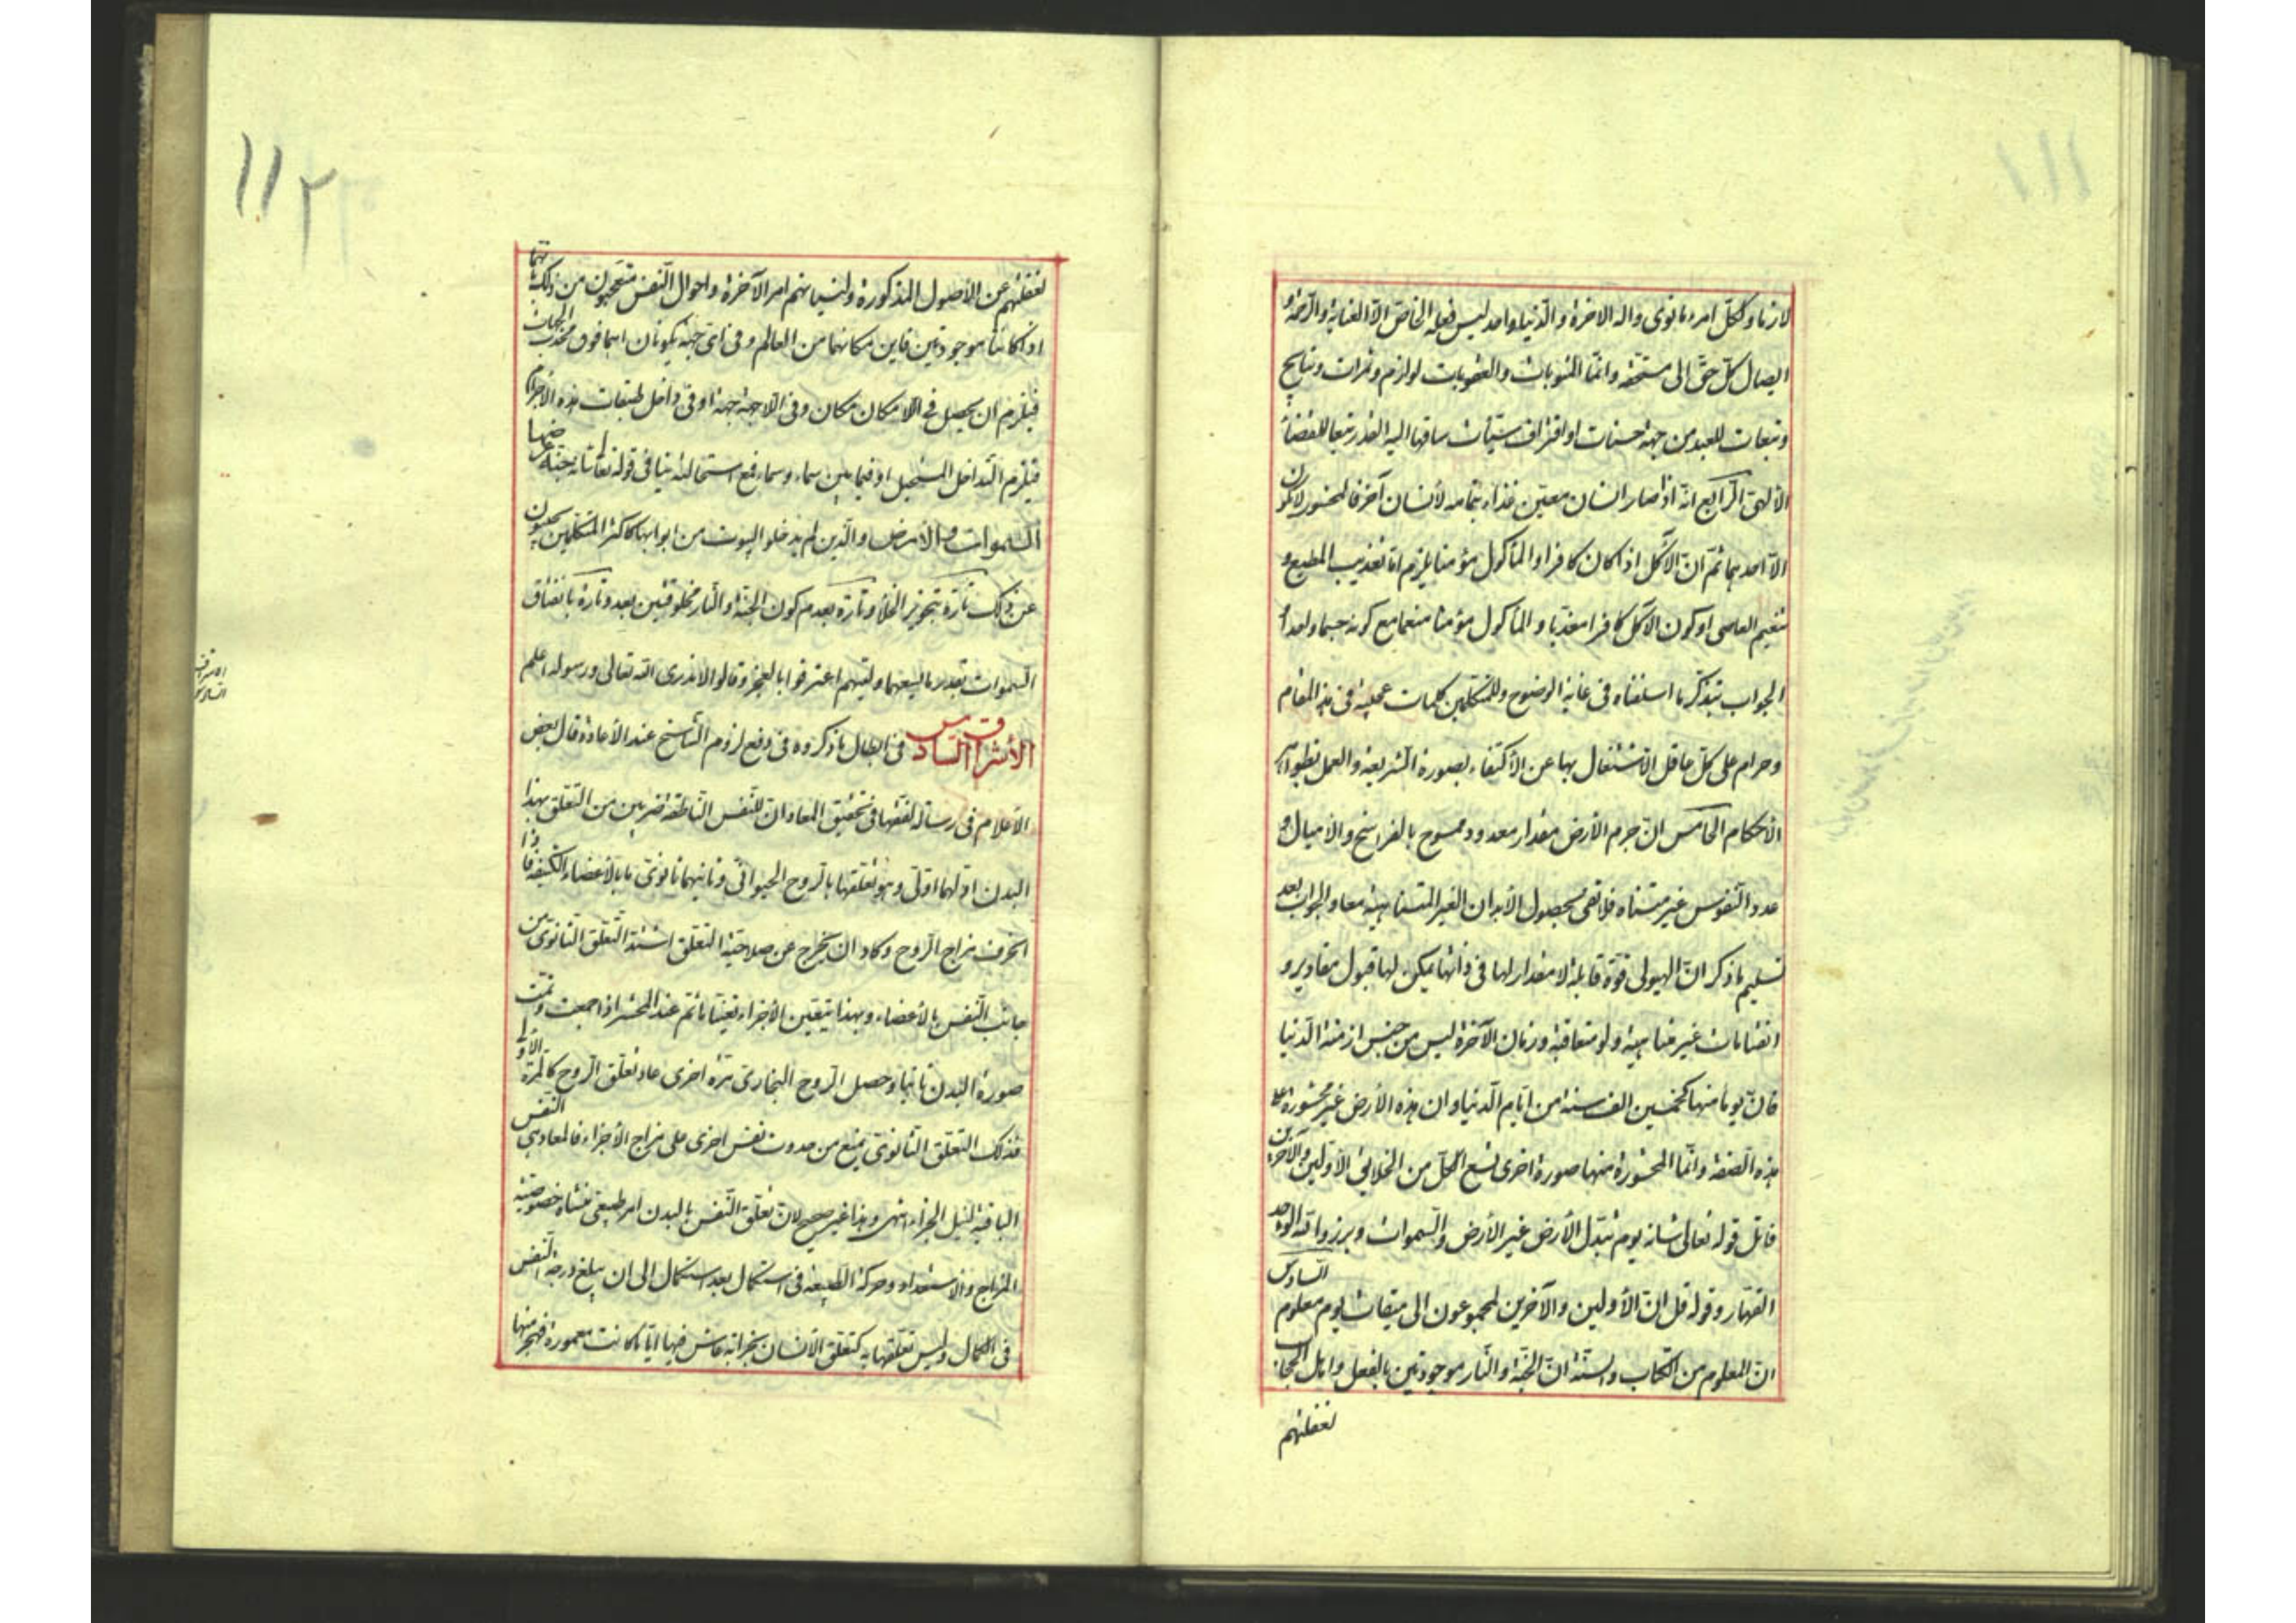 لازما ولكل امرء ما نوى واله الاخرة والدنيا واحد ليس فعله الخاص الا العناية والرحمة و
ايصال كل حق الى مستحقه وانما المثوبات والعقوبات لوازم وثمرات ونتايج
وتبعات للعبد من جهة حسنات او اقتراف سيئات ساقها اليه القدر تبعا للقضاء
الالهى الرابع انه اذا صار انسان معين غذاء بتمامه لأنسان آخر فالمحشور لا يكون
الا احدهما ثم ان الآكل اذا كان كافرا والمأكول مؤمنا يلزم اما تعذيب المطيع و
تنعيم العاصى او كون الآكل كافرا معذبا والمأكول مؤمنا منعما مع كونه جسما واحدا
الجواب بتذكر ما اسلفناه فى غاية الوضوح وللمتكلمين كلمات عجيبة فى هذه المقام
وحرام على كل عاقل الاشتغال بها عن الاكتفاء بصورة الشريعة والعمل بظواهر
الأحكام الخامس ان جرم الأرض مقدار معدود ممسوح بالفراسخ والاميال و
عدد النفوس غير متناه فلا تفى بحصول الأبدان الغير المتناهية معا والجواب بعد
تسليم ما ذكر ان الهيولى قوة قابلة لا مقدار لها فى ذاتها يمكن لها قبول مقادير و
انقسامات غير متناهية ولو متعاقبة وزمان الآخرة ليس من جنس ازمنة الدنيا
فان يوما منها كخمسين الف سنة من ايام الدنيا وان هذه الأرض غير محشورة على
هذه الصفة وانما المحشورة منها صورة اخرى تسع الكل من الخلايق الاولين والآخرين
فاتل قوله تعالى شانه يوم تبدل الأرض غير الأرض والسموات وبرزوا لله الواحد
القهار وقوله قل ان الأولين والآخرين لمجموعون الى ميقات يوم معلوم السادس
ان المعلوم من الكتاب والسنة ان الجنة والنار موجودتين بالفعل واهل الحجاب
لغفلتهم
١١٢
لغفلتهم عن الأصول المذكورة ولنسيانهم امر الآخرة واحوال النفس متعجبون من ذلك بانهما
اذا كانتا موجودتين فاين مكانهما من العالم وفى اى جهة يكونان اهما فوق محدد الجهات
فيلزم ان يحصل فى اللامكان مكان وفى اللاجهة جهة او فى داخل طبقات هذه الأجرام
فيلزم التداخل المستحيل او فيما بين سماء وسماء فمع استحالته ينافى قوله تعالى جنة عرضها
السموات والأرض والذين لم يدخلوا البيوت من ابوابها كاكثر المتكلمين يجيبون
عن ذلك تارة بتجويز الخلأ وتارة بعدم كون الجنة والنار مخلوقتين بعد وتارة بانفتاق
السموات بقدر ما يسعهما وليتهم اعترفوا بالعجز وقالوا لا ندرى الله تعالى ورسوله اعلم
الأشراق السادس فى ابطال ما ذكروه فى دفع لزوم التناسخ عند الأعادة قال بعض
الأعلام فى رسالة لفقها فى تحقيق المعاد ان للنفس الناطقة ضربين من التعلق بهذا
البدن اولهما اولى وهو تعلقها بالروح الحيوانى وثانيهما ثانوى بالأعضاء الكثيفة فاذا
انحرف مزاج الروح وكاد ان يخرج عن صلاحية التعلق اشتد التعلق الثانوى من
جانب النفس بالأعضاء وبهذا يتعين الأجزاء تعينا ما ثم عند المحشر اذا جمعت وتمت
صورة البدن ثانيا وحصل الروح البخارى مرة اخرى عاد تعلق الروح كالمرة الأولى
فذلك التعلق الثانوى يمنع من حدوث نفس اخرى على مزاج الأجزاء فالمعاد هى النفس
الباقية لنيل الجزاء انتهى وهذا غير صحيح لان تعلق النفس بالبدن امر طبيعى منشاؤه خصوصية
المزاج والاستعداد وحركة الطبيعة فى استكمال بعد استكمال الى ان يبلغ درجة النفس
فى الكمال وليس تعلقها به كتعلق الانسان بخرابة عاش فيها اياما كانت معمورة فهجر منها
الاشراق
السادس